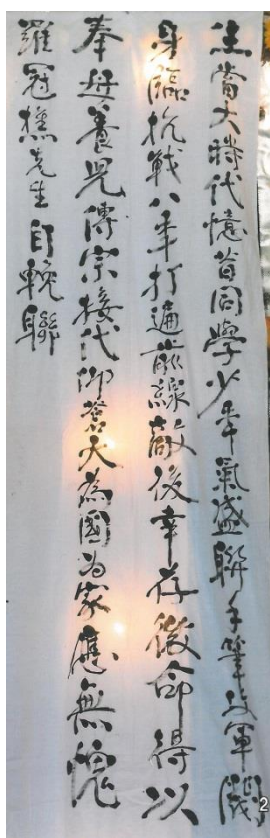 生當大時代憶昔同學少年氣盛聯手筆投軍戎
身臨抗戰八年打遍前線敵後幸存微命得以
奉母養兒傳宗接代仰蒼天為國為家應無愧
羅冠樵先生自輓聯
2